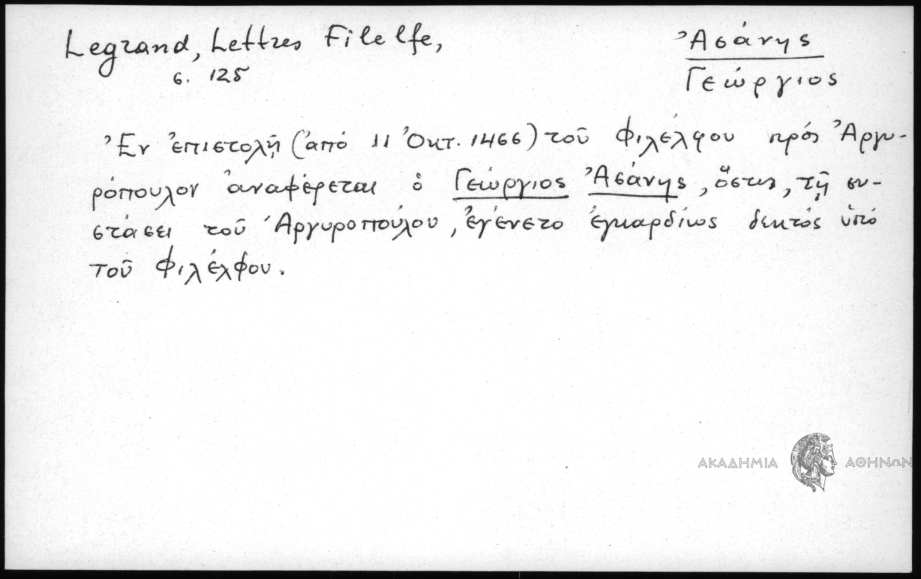 Legrand, Lettres Filelfe,
σ. 125
Ἀσάνης
Γεώργιος
Ἐν ἐπιστολῇ (ἀπό 11 Ὀκτ. 1466) τοῦ Φιλέλφου πρός Ἀργυ-
ρόπουλον ἀναφέρεται ὁ Γεώργιος Ἀσάνης, ὅστις, τῇ συ-
στάσει τοῦ Ἀργυροπούλου, ἐγένετο ἐγκαρδίως δεκτός ὑπό
τοῦ Φιλέλφου.
ΑΚΑΔΗΜΙΑ ΑΘΗΝΩΝ